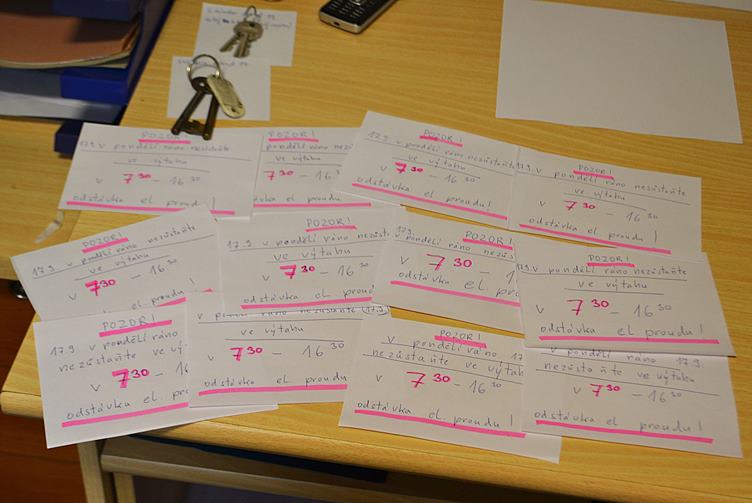 POZOR!
17.9 v pondělí ráno nezůstaňte
ve výtahu
v 7³⁰ - 16³⁰
odstávka el. proudu!
POZOR!
pondělí ráno nez
ve výtahu
v 7³⁰ - 16³⁰
odstávka el. proudu!
POZOR!
17.9 v pondělí ráno nezůstaňte
ve výtahu
v 7³⁰ - 16³⁰
odstávka el. proudu!
POZOR!
17.9. v pondělí ráno nezůstaňte
ve výtahu
v 7³⁰ - 16³⁰
odstávka el. proudu!
POZOR!
17.9. v pondělí ráno nezůstaňte
ve výtahu
v 7³⁰ - 16³⁰
el. proudu!
POZOR!
17.9. v pondělí ráno nezůst
ve výtahu
v 7³⁰ - 16³⁰
odstávka el. proud
POZOR!
pondělí ráno nezůs
v 7³⁰ - 16
odstávka el. prou
POZOR!
17.9. v pondělí ráno nezůstaňte
ve výtahu
v 7³⁰ - 16³⁰
odstávka el. proudu!
POZOR!
17.9 v pondělí ráno
nezůstaňte ve výt
v 7³⁰ - 16
odstávka el. pr
v pondělí ráno nezůstaňte (17.9.)
ve výtahu
v 7³⁰ - 16³⁰
odstávka el. proudu
POZOR!
v pondělí ráno 17
nezůstaňte ve výtah
v 7³⁰ - 16³⁰
odstávka el. proudu!
v pondělí ráno 17.9.
nezůstaňte ve výtahu
v 7³⁰ - 16³⁰
odstávka el. proudu!